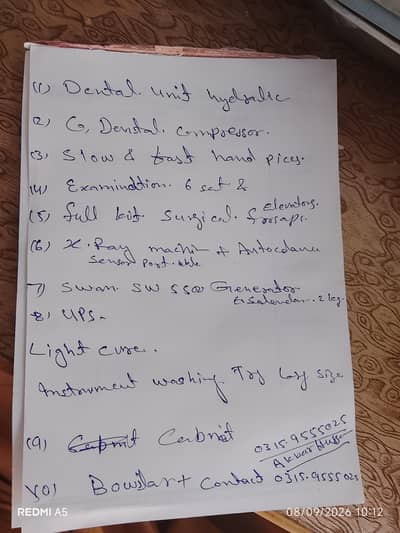 (1) Dental unit hydralic
(2) G, Dental compressor.
(3) Slow & fast hand pices.
(4) Examindtion. 6 set &
(5) full kit surgical. Elevators. forsaps.
(6) X.Ray machin + Autoclave
Sensor Port.able
7) Swan SW 5500 Generator
& Salendar. 2 kg.
8) UPS.
Light cure.
Instrument washing Try larg size
(9) Cabnit
10) Bowilar + Contact 0315.9555025
0315.9555025
REDMI A5
08/09/2026 10:12